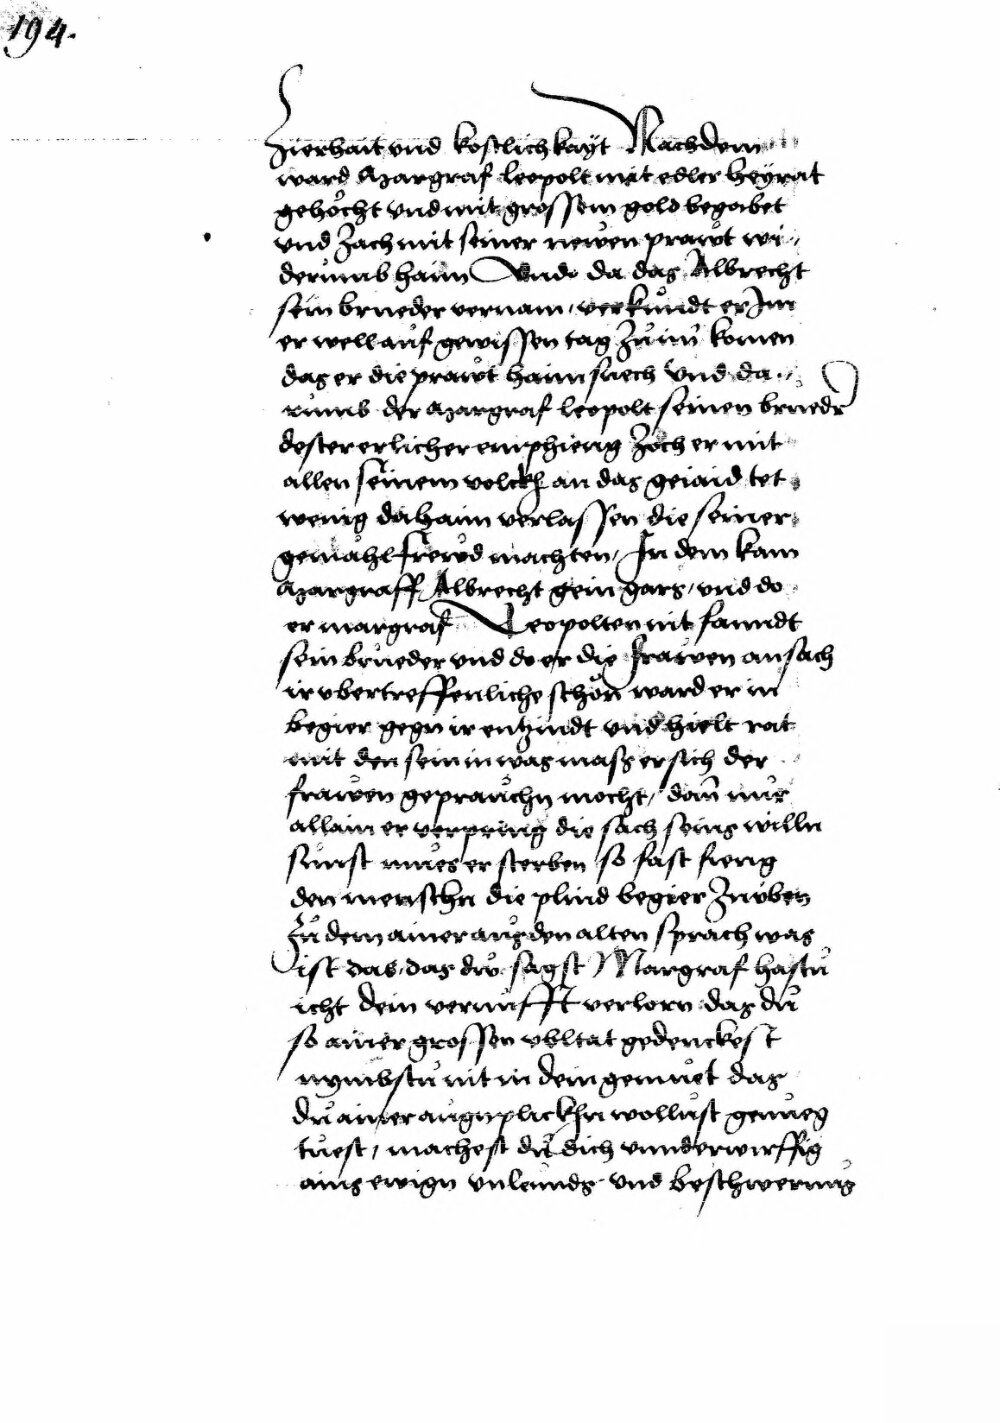 194.
Zierhait vnd kostlichkayt Nachdem
ward Margraf leopolt mit edler heyrat
gehöcht vnd mit grossem gold begabet
vnd zach mit seiner newen prawt wi¬
derumb haim Vnd da das Albrecht
sein brueder vernam / verkündt er Im
er well auf gewissen tag zu im komen
das er die prawt haimsuech vnd da¬
rumb der Margraf leopolt seinen bruedr
dester erlicher emphieng Zoch er mit
allen seinem volckh an das geiaid tet
wenig dahaim verlassen die seiner
gemahl frewd machten / In dem kam
Margraff Albrecht gein gars / vnd do
er margraf Leopolten nit fanndt
sein brueder vnd do er die frawen ansach
ir vbertreffenliche schön ward er in
begier gegn ir entzindt vnd hielt rat
mit den sein in was mass er sich der
frawen geprauchn mocht / dan nur
allain er verpring die sach seins willn
sunst mues er sterben so fast fieng
den menschn die plind begier
Zu dem ainer aus den alten sprach was
ist das / das du sagst Margraf hastu
icht dein vernufft verlorn das du
so ainer grossen vbltat gedenckest
nymbstu nit in dein gemuet das
du ainer augnplickhn wollust genueg
tuest / machest du dich vnnderwirffig
ains ewign vnleunds vnd beschwerung